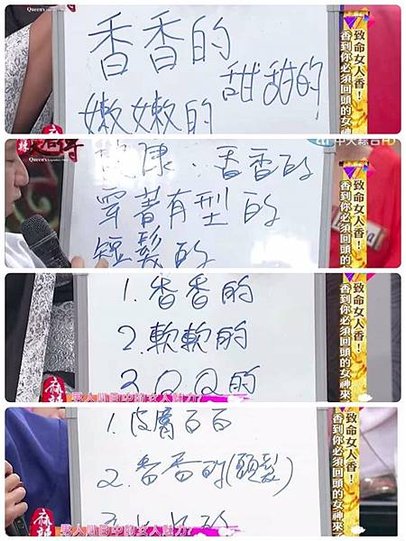 香香的
甜甜的
嫩嫩的
致命女人香！
香到你必須回頭的女神
Queen's
健康、香香的
穿著有型的
短髮的
中天綜合HD
致命女人香！
香到你必須回頭的
Queen's
1.香香的
2.軟軟的
3.QQ的
致命女人香！
香到你必須回頭的女神來
麻辣
1.皮膚百百
2.香香的(頭髮)
致命女人香！
香到你必須回頭的女神來
麻辣